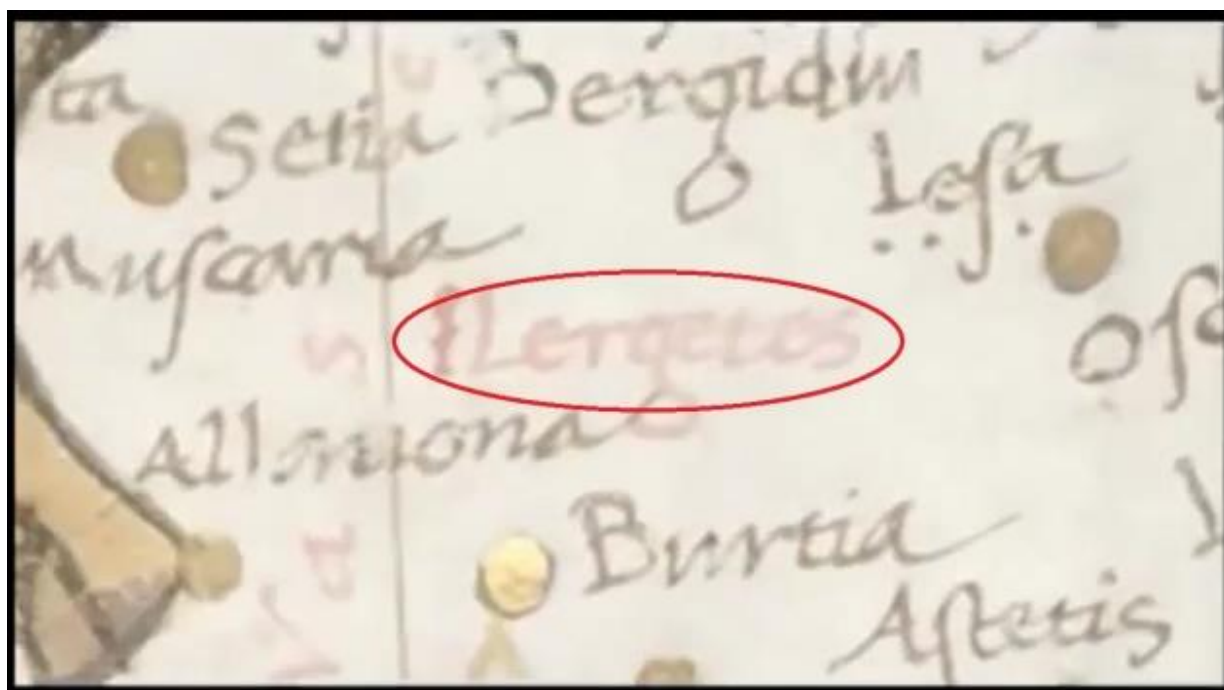 ta
Setia
Bergidiu
Iesa
Muscaria
Ilergetes
Osc
Allauona
Burtia
Astetis